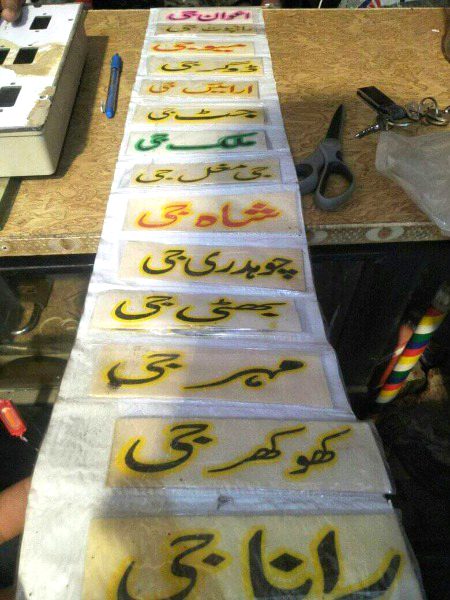 اعوان جی
راجپوت جی
میو جی
ڈوگر جی
ارائیں جی
جٹ جی
ملک جی
جی
شاہ جی
چوہدری جی
بھٹی جی
مہر جی
کھوکھر جی
رانا جی